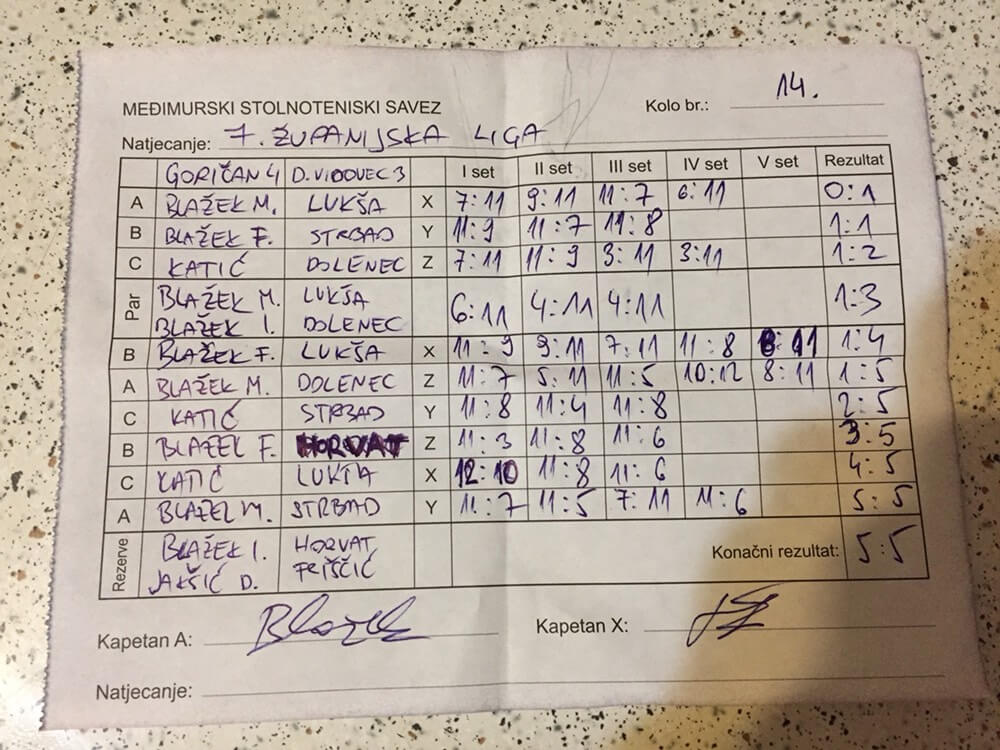 MEĐIMURSKI STOLNOTENISKI SAVEZ Kolo br.: 14.
Natjecanje: 7. ŽUPANIJSKA LIGA
GORIČAN 4 D.VIDOVEC 3 I set II set III set IV set V set Rezultat
A BLAŽEK M. LUKŠA X 7:11 9:11 11:7 6:11 0:1
B BLAŽEK F. STRBAD Y 11:9 11:7 11:8 1:1
C KATIĆ DOLENEC Z 7:11 11:9 3:11 3:11 1:2
Par BLAŽEK M. LUKŠA 6:11 4:11 4:11 1:3
BLAŽEK I. DOLENEC
B BLAŽEK F. LUKŠA X 11:9 9:11 7:11 11:8 8:11 1:4
A BLAŽEK M. DOLENEC Z 11:7 5:11 11:5 10:12 8:11 1:5
C KATIĆ STRBAD Y 11:8 11:4 11:8 2:5
B BLAZEL F. HORVAT Z 11:3 11:8 11:6 3:5
C KATIĆ LUKTA X 12:10 11:8 11:6 4:5
A BLAZEL M. STRBAD Y 11:7 11:5 7:11 11:6 5:5
Rezerve BLAŽEK I. HORVAT Konačni rezultat: 5:5
JAKŠIĆ D. FRIŠČIĆ
Kapetan A: Blazek Kapetan X:
Natjecanje: